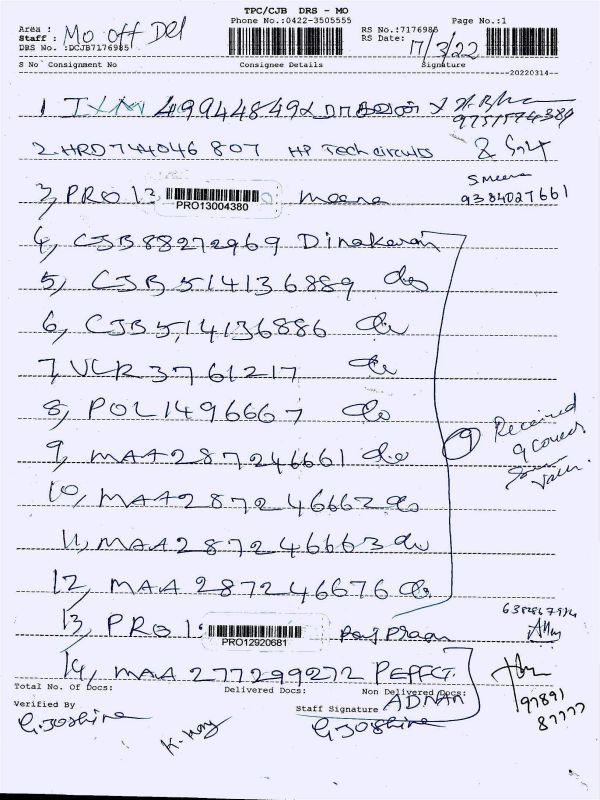 TPC/CJB DRS - MO
Phone No.:0422-3505555
Page No.:1
Area :
Staff :
Mo off Del
DRS No. :DCJB7176985
RS No.:7176985
RS Date:
17/3/22
S No Consignment No Consignee Details Signature
20220314
1 IXM 499448492
9751574384
2. HRD744046807 HP Tech circuits
& 524
3, PRO 13
PRO13004380
meena
S meena
9384027661
4, CJB88272969 Dinakaran
5, CJB514136889 do
6, CJB514136886 do
7, VLR3761217 do
8, POL1496667 do
9 Received
9 Covers
9, MAA287246661 do
10, MAA287246662 do
11, MAA287246663 do
12, MAA287246676 do
13, PRO 1
PRO12920681
14, MAA277299272 PEFFCT
97891
87777
Total No. Of Docs: Delivered Docs: Non Delivered Docs:
ADNAN
Verified By
Staff Signature
G. Joshine
G. Joshine